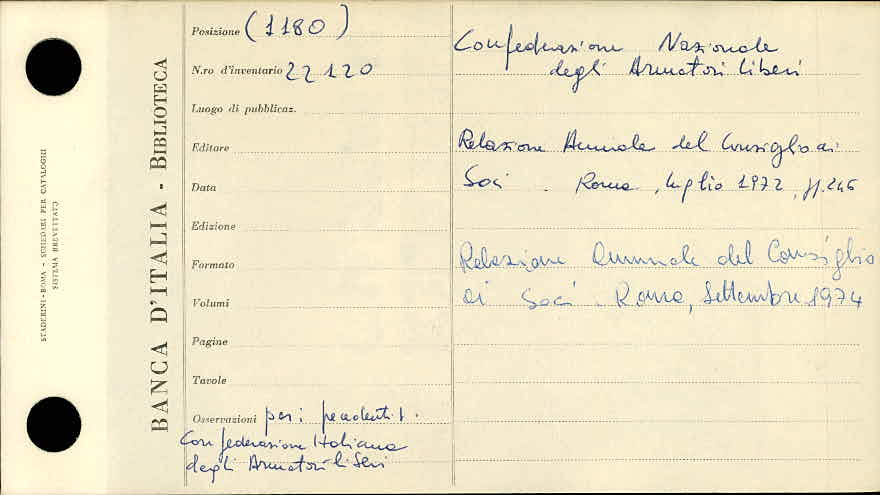 STADERINI - ROMA - SCHEDARI PER CATALOGHI
SISTEMA BREVETTATO
BANCA D'ITALIA - BIBLIOTECA
Posizione (1180)
N.ro d'inventario 22120
Luogo di pubblicaz.
Editore
Data
Edizione
Formato
Volumi
Pagine
Tavole
Osservazioni per i precedenti v.
Confederazione Italiana
degli Armatori liberi
Confederazione Nazionale
degli Armatori liberi
Relazione Annuale del Consiglio ai
Soci. Roma, luglio 1972, pp.246
Relazione Annuale del Consiglio
ai Soci. Roma, Settembre 1974